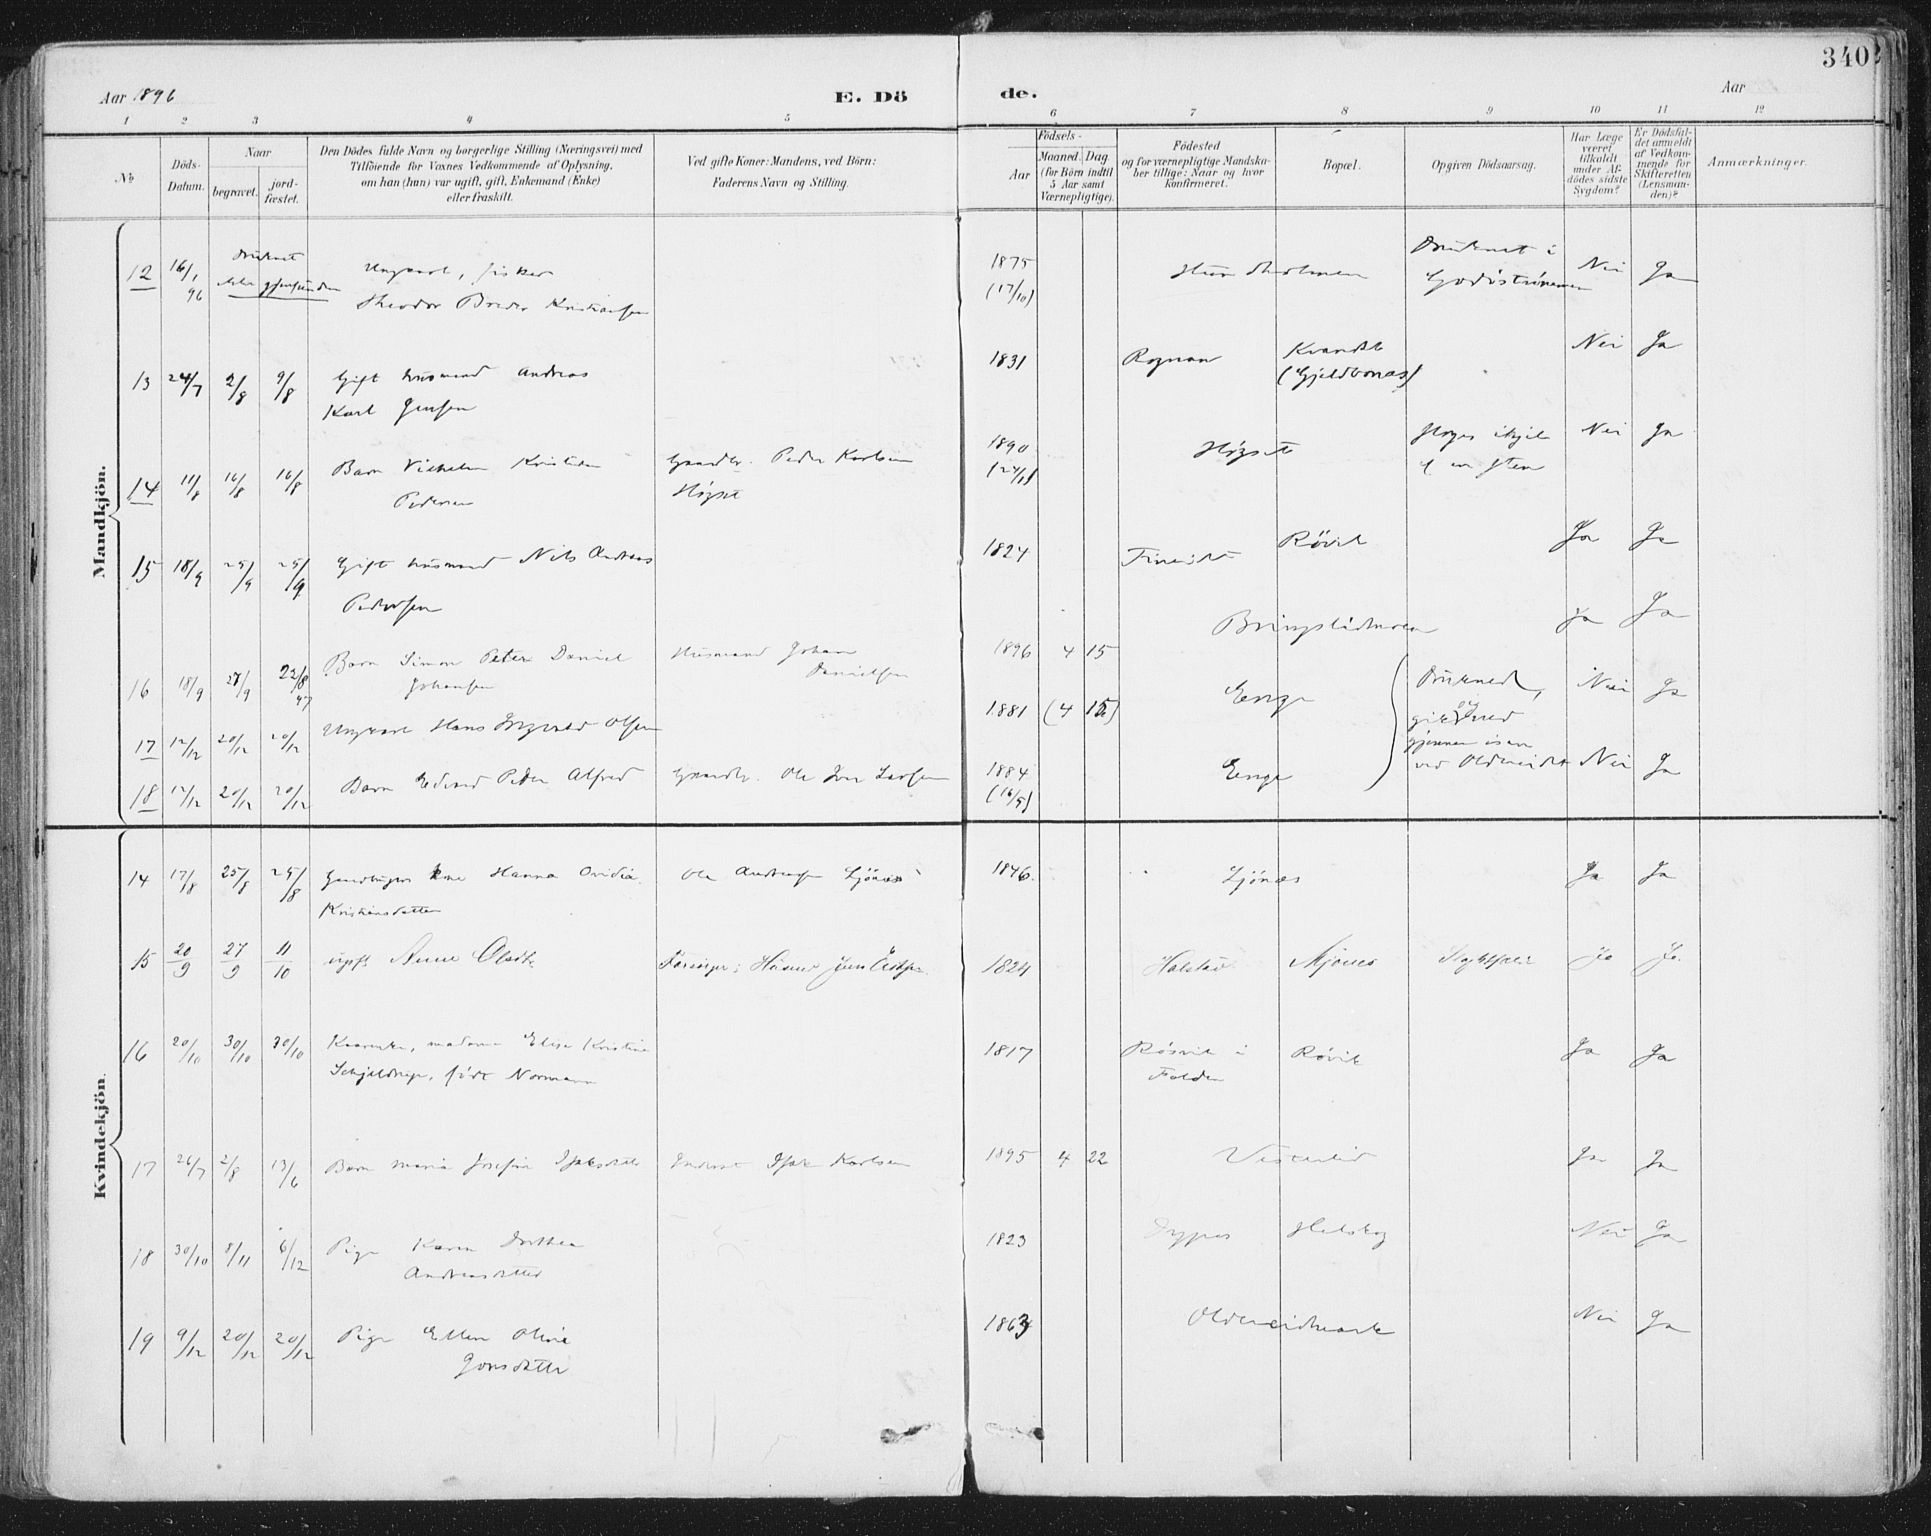 340
Aar 1896
E. Dö
de.
Aar
1 2 3 4 5 6 7 8 9 10 11 12
No
Döds-
Datum.
Naar
begravet.
jord-
fæstet.
Den Dödes fulde Navn og borgerlige Stilling (Næringsvei) med
Tilföiende for Voxnes Vedkommende af Oplysning,
om han (hun) var ugift, gift, Enkemand (Enke)
eller fraskilt.
Ved gifte Koner: Mandens, ved Börn:
Faderens Navn og Stilling.
Födsels-
Aar
Maaned. Dag
(for Börn indtil
5 Aar samt
Værnepligtige).
Födested
og for værnepligtige Mandska-
ber tillige: Naar og hvor
konfirmeret.
Bopæl.
Opgiven Dödsaarsag.
Har Læge
været
tilkaldt
under Af-
dödes sidste
Sygdom?
Er Dödsfal-
det anmeldt
af Vedkom-
mende for
Skifteretten
(Lensman-
den)?
Anmærkninger.
Mandkjön.
12 16/1 96 Druknet ikke gjenfunden
Ungkarl, fisker
Theodor Breder Kristiansen
1875 (17/10)
Druknet i
Godöströmmen Nei Ja
13 24/7 2/8 9/8 Gift husmand Andreas
Karl Jensen
1831 Rognan Kvandal Nei Ja
14 11/8 16/8 16/8 Barn Vilhelm Kristian
Pedersen
Gaardbr. Peder Karlsen
Högset
1890 Högset
ihjel
af en Sten Nei Ja
15 18/9 25/9 25/9 Gift husmand Nils Andreas
Pedersen
1824 Fineidet Rövik Ja Ja
16 18/9 27/9 22/8 97 Barn Simon Peter Daniel
Johansen
Husmand Johan
Danielsen
1896 4 15 Bringslidmoen Ja Ja
17 12/12 20/12 20/12 Ungkarl Hans Ingvald Olsen
1881 (4 15) Enge
Druknet,
gik ned
gjennem isen
ved Oldereidet Nei Ja
18 12/12 20/12 20/12 Barn Edvard Peder Alfred
Gaardbr. Ole Jon Larsen
1884 (16/9) Enge Nei Ja
Kvindekjön.
14 17/8 25/8 25/8 Gaardbrugers kone Hanna Ovidia
Kristensdatter
Ole Andreasen Ljönes
1846. Ljönes Ja Ja
15 20/9 27/9 11/10 ugift Anne Olsdtr
1824 Mjönes Ja Ja.
16 20/10 30/10 30/10 madame Elise Kristine
Schjelderup, född Normann
1817 Rösvik i
Folden Rövik Ja Ja
17 26/7 2/8 13/6 Barn Maria Josefine Isaksdatter
Inderst Isak Karlsen
1895 4 22 Vesterlid Ja Ja
18 30/10 8/11 6/12 Pige Karen Dorthea
Andreasdatter
1823 Nei Ja
19 9/12 20/12 20/12 Pige Ellen Oline
Jonsdatter
1863 Oldereidmark Nei Ja